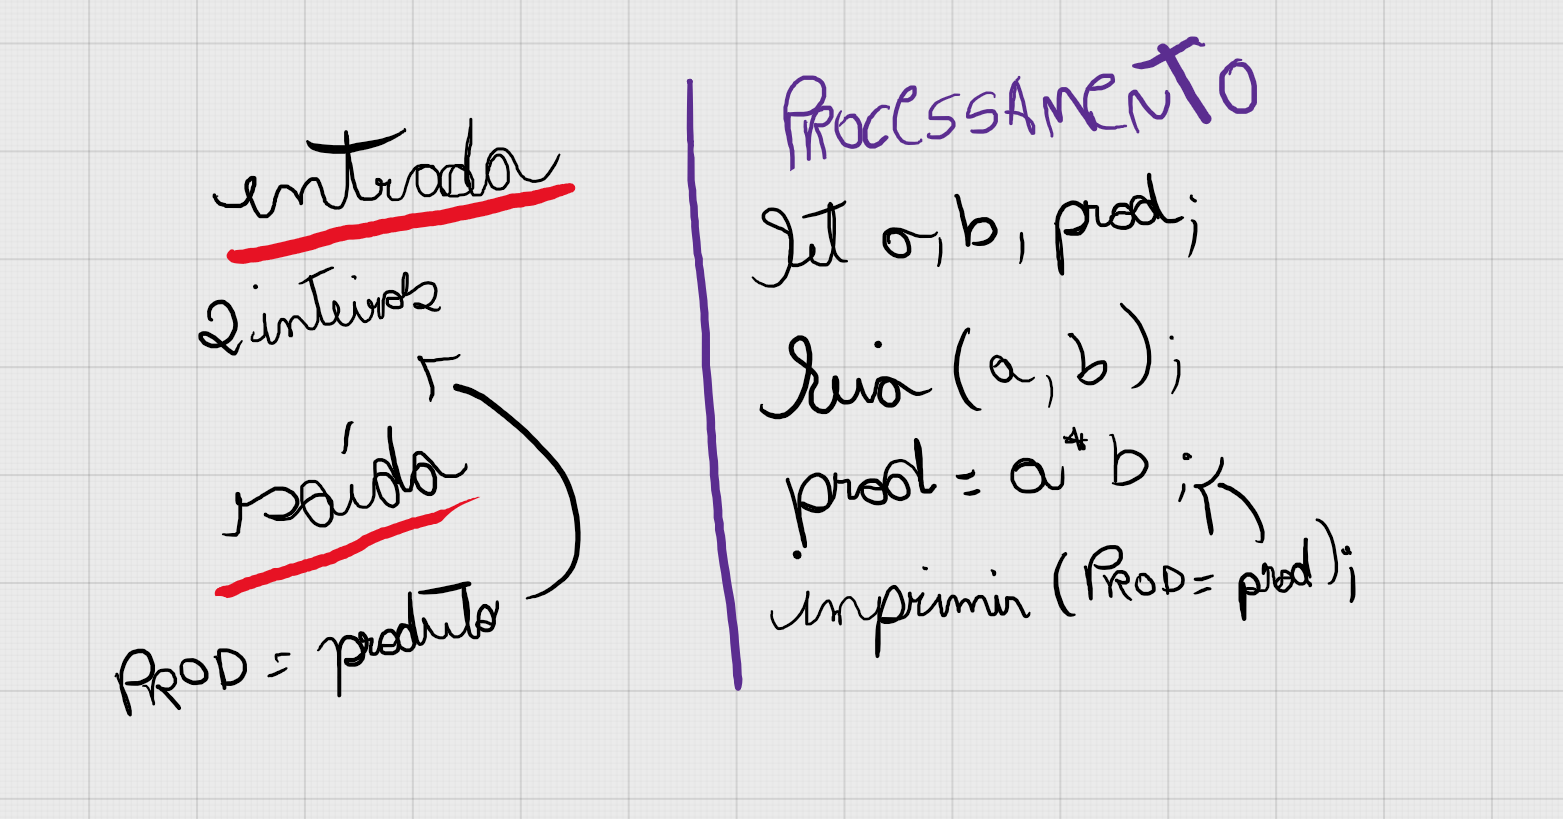 entrada
2 inteiros
saída
PROD = produto
PROCESSAMENTO
let a, b, prod;
leia (a, b);
prod = a * b;
imprimir (PROD = prod);